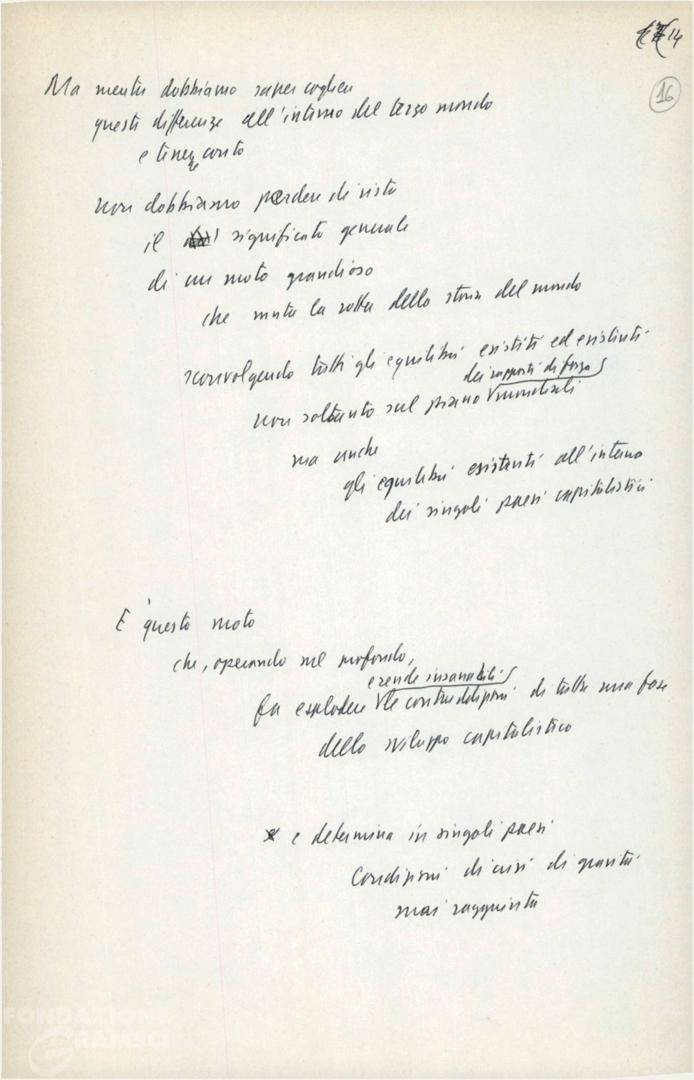 14
16
Ma mentre dobbiamo saper cogliere
queste differenze all'interno del terzo mondo
e tenerne conto
non dobbiamo perdere di vista
il significato generale
di un moto grandioso
che muta la rotta della storia del mondo
sconvolgendo tutti gli equilibri esistiti ed esistenti
dei rapporti di forza
non soltanto sul piano mondiali
ma anche
gli equilibri esistenti all'interno
dei singoli paesi capitalistici
E' questo moto
che, operando nel profondo,
e rende insanabili
fa esplodere le contraddizioni di tutta una fase
dello sviluppo capitalistico
e determina in singoli paesi
condizioni di crisi di gravità
mai raggiunta
FONDAZIONE
GRAMSCI